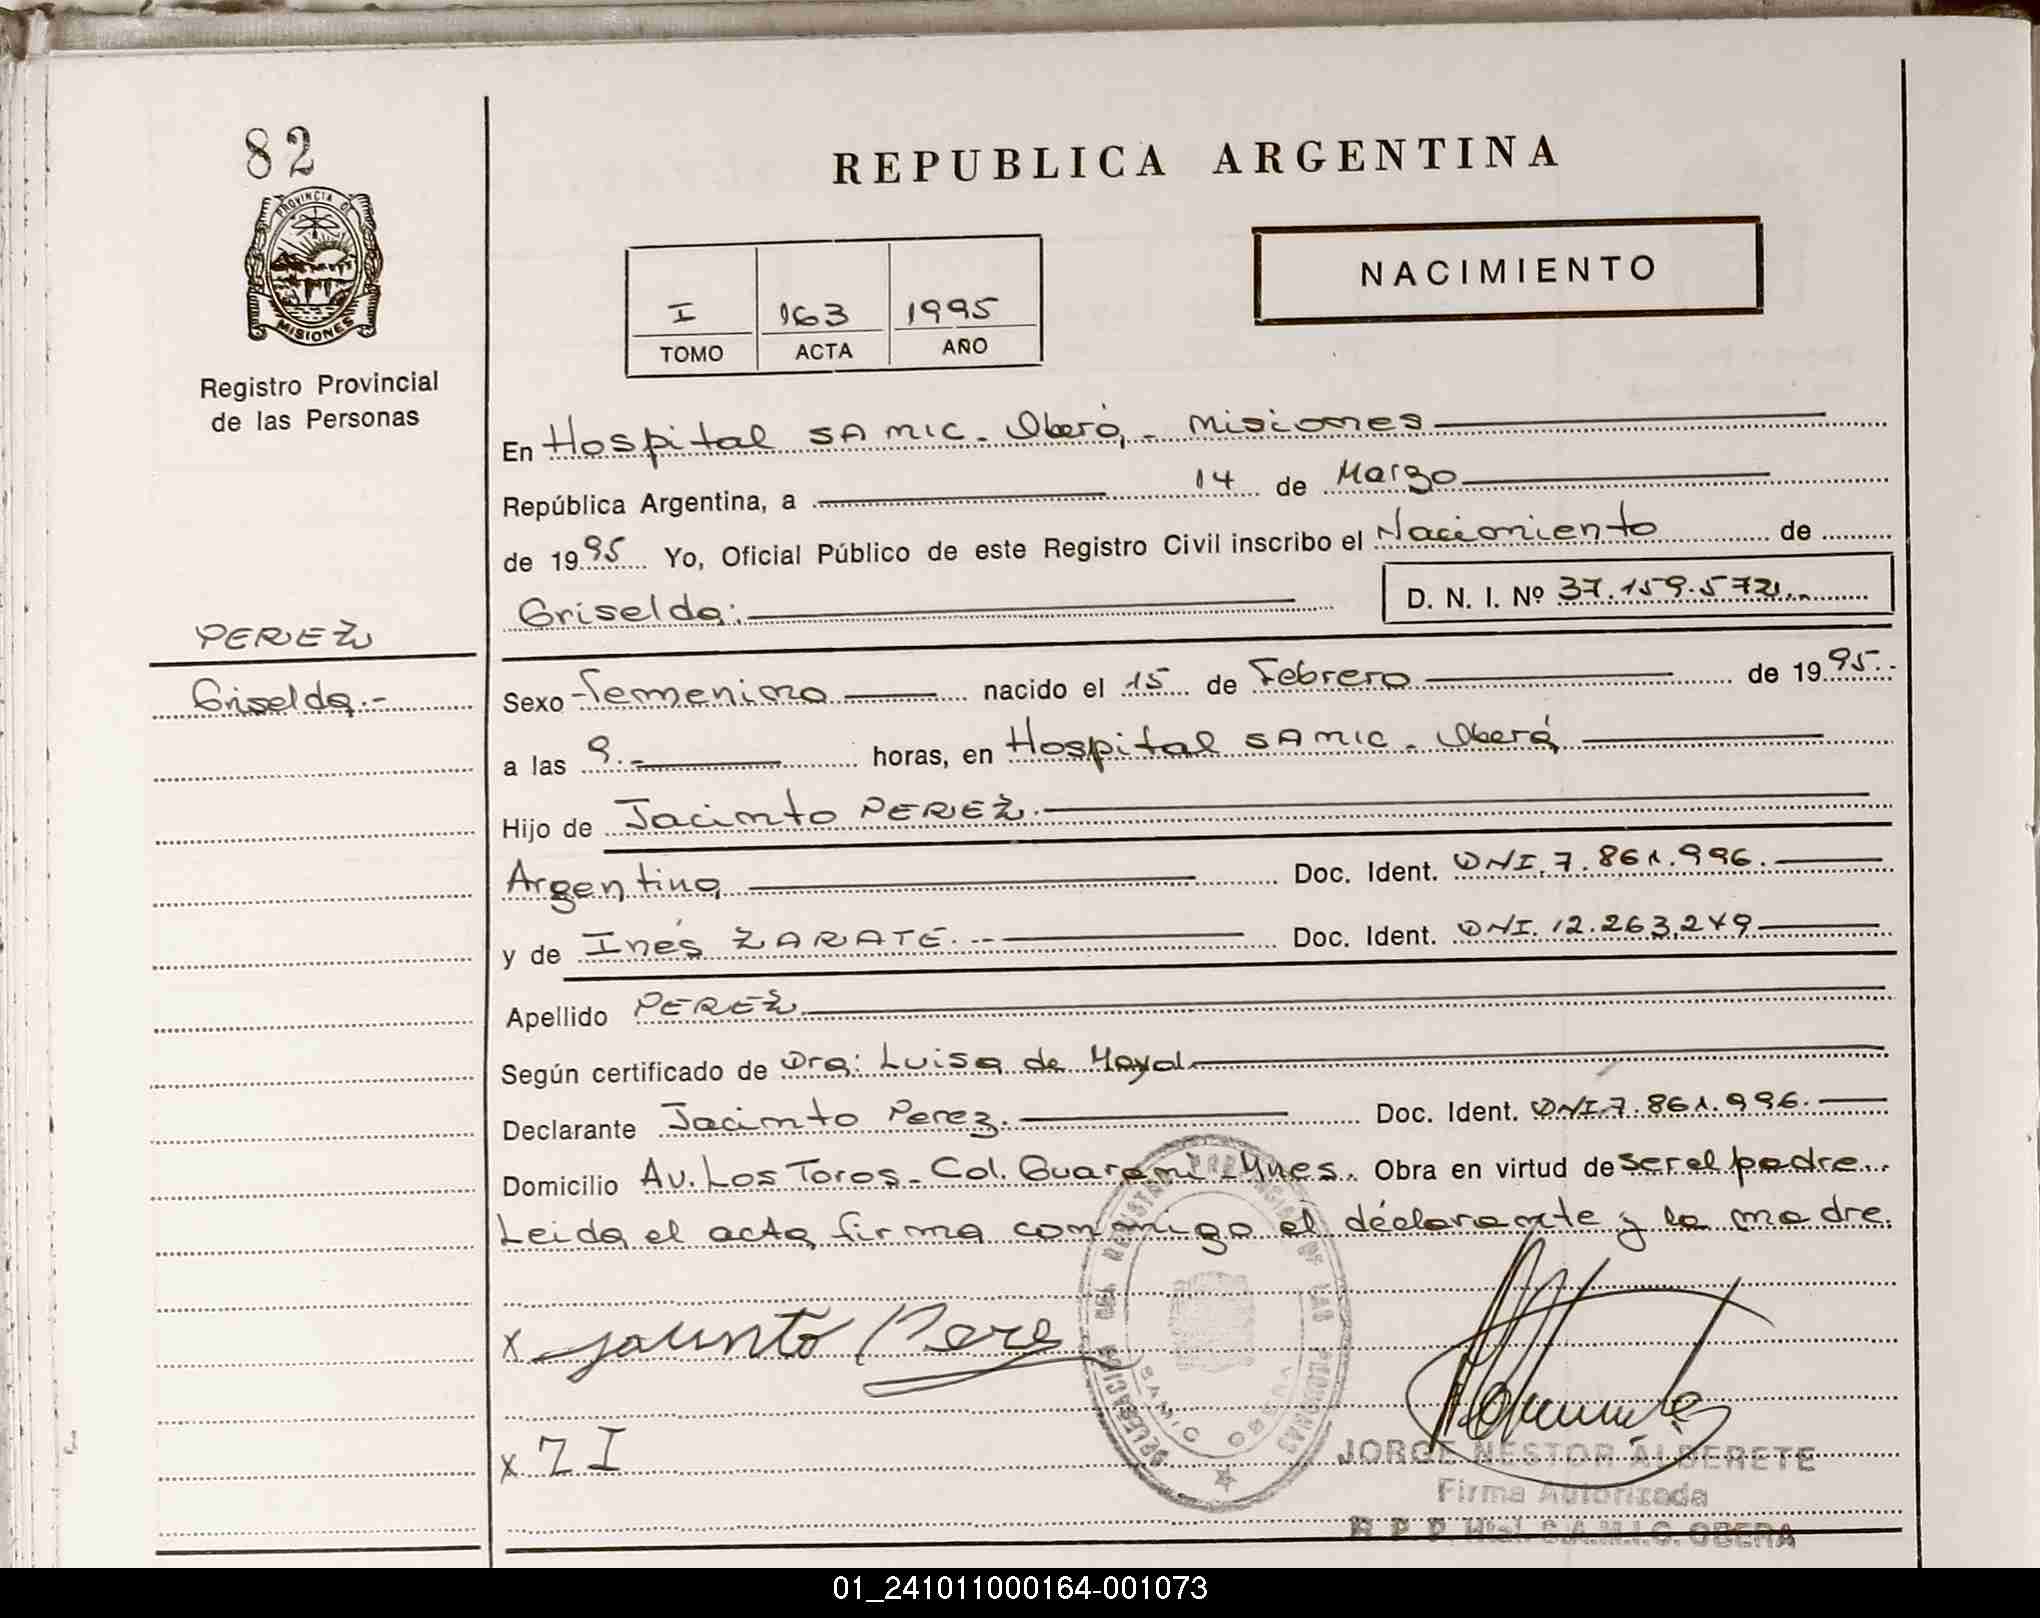 82
PROVINCIA DE
MISIONES
Registro Provincial
de las Personas
PEREZ
Griselda.-
REPUBLICA ARGENTINA
NACIMIENTO
I 163 1995
TOMO ACTA AÑO
En Hospital SAMIC - Oberá, - Misiones
República Argentina, a 14 de Marzo
de 1995 Yo, Oficial Público de este Registro Civil inscribo el Nacimiento de
Griselda: D. N. I. Nº 37.159.572
Sexo Femenino nacido el 15 de Febrero de 1995.
a las 9.- horas, en Hospital SAMIC - Oberá
Hijo de Jacinto PEREZ.
Argentina Doc. Ident. DNI. 7.861.996.
y de Inés ZARATE. -- Doc. Ident. DNI. 12.263.249
Apellido PEREZ
Según certificado de Dra: Luisa de Mayol
Declarante Jacinto Perez. Doc. Ident. DNI.7.861.996.
Domicilio Av. Los Toros - Col. Guarani - Mnes. Obra en virtud de ser el padre.
Leida el acta firma conmigo el declarante y la madre.
x Jacinto Pere
x Z I
DELEGACION DEL REGISTRO PROVINCIAL DE LAS PERSONAS
SAMIC OBERA
JORGE NESTOR ALBERETE
Firma Autorizada
R. P. P. Htal. S.A.M.I.C. OBERA
01_241011000164-001073